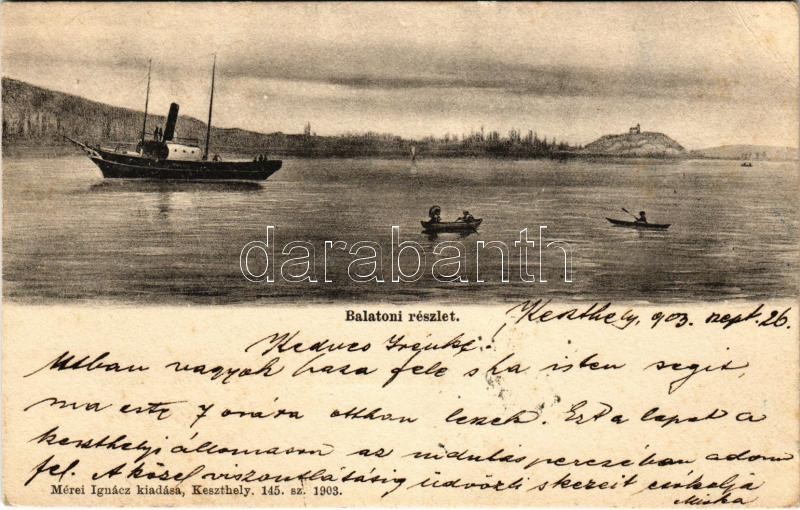 darabanth
Balatoni részlet.
Keszthely, 903. sept. 26.
Kedves Irénke!
Utban vagyok haza felé s ha isten segit,
ma este 7 órára otthon leszek. Ezt a lapot a
keszthelyi állomáson az indulás perczében adom
fel. A közel viszontlátásig üdvözli s kezeit csókolja
Miska
Mérei Ignácz kiadása, Keszthely. 145. sz. 1903.